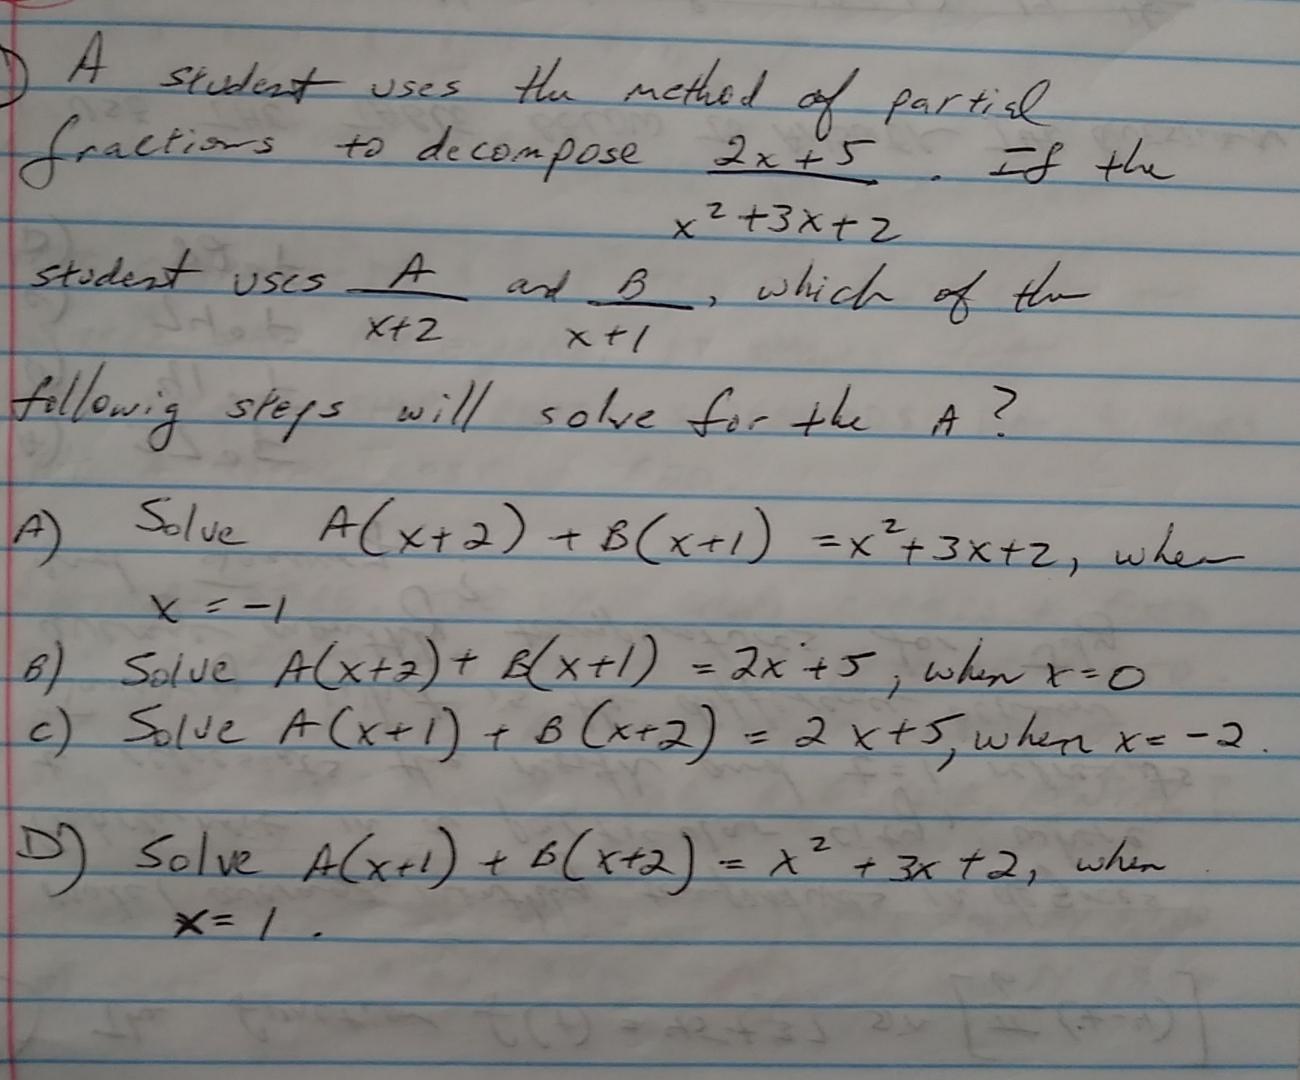 A student uses the method of partial
fractions to decompose 2x+5 / x²+3x+2 . If the
student uses A / x+2 and B / x+1 , which of the
followig steps will solve for the A?
A) Solve A(x+2) + B(x+1) = x²+3x+2, when
x = -1
B) Solve A(x+2) + B(x+1) = 2x+5, when x=0
C) Solve A(x+1) + B(x+2) = 2x+5, when x= -2.
D) Solve A(x+1) + B(x+2) = x² + 3x +2, when
x= 1.